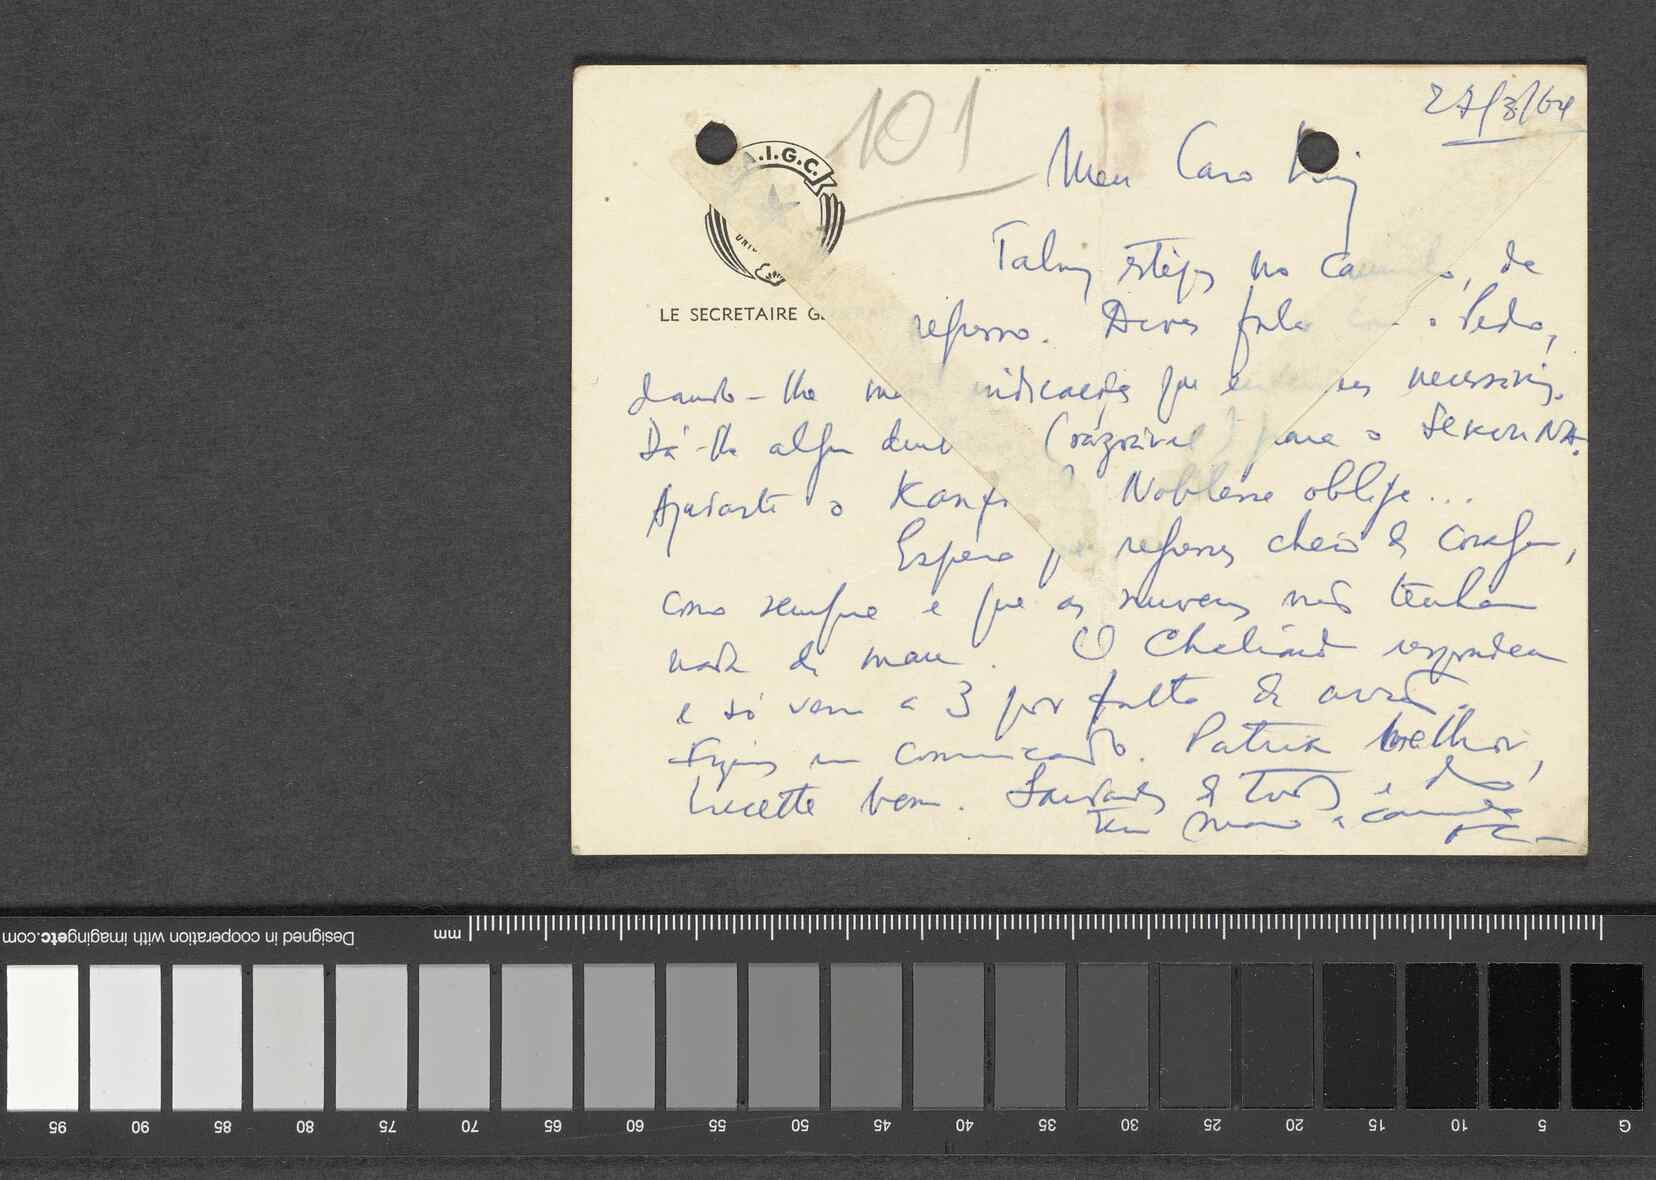 27/3/64
101
A.I.G.C.
LE SECRETAIRE GENERAL
Meu Caro
Talvez estejas no caminho, de
regresso. Deves falar com o Pedro,
dando-lhe mais indicações que entenderes necessárias.
Dá-lhe algum dinh (razoável) para o
Ajudaste o Noblesse oblige...
Espero que regresses cheio de coragem,
como sempre e que as nuvens não tenham
nada de mau. O Chaliand respondeu
e só vem a 3 por falta de avião.
um comunicado. Patrick melhor,
Lucette bem. Saudades de todos e do
teu mano e camarada
mm
Designed in cooperation with imagingetc.com
95 90 85 80 75 70 65 60 55 50 45 40 35 30 25 20 15 10 5 G